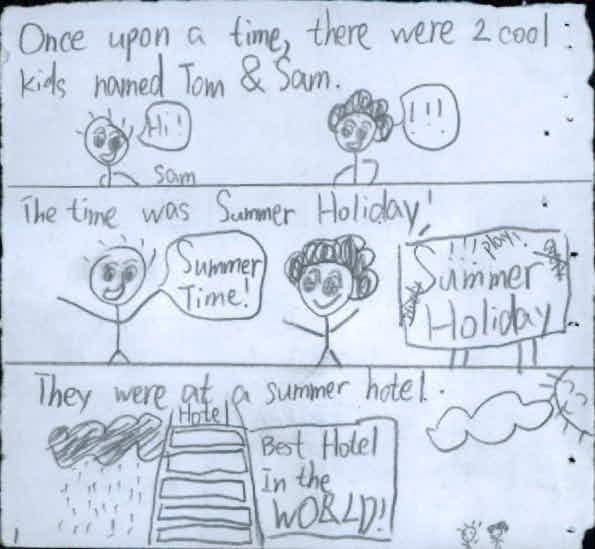 Once upon a time, there were 2 cool
kids named Tom & Sam.
Hi!
!!!
Sam
The time was Summer Holiday!
Summer
Time!
!!! play!
Summer
Holiday
They were at a summer hotel.
Hotel
Best Hotel
in the
WORLD!
1